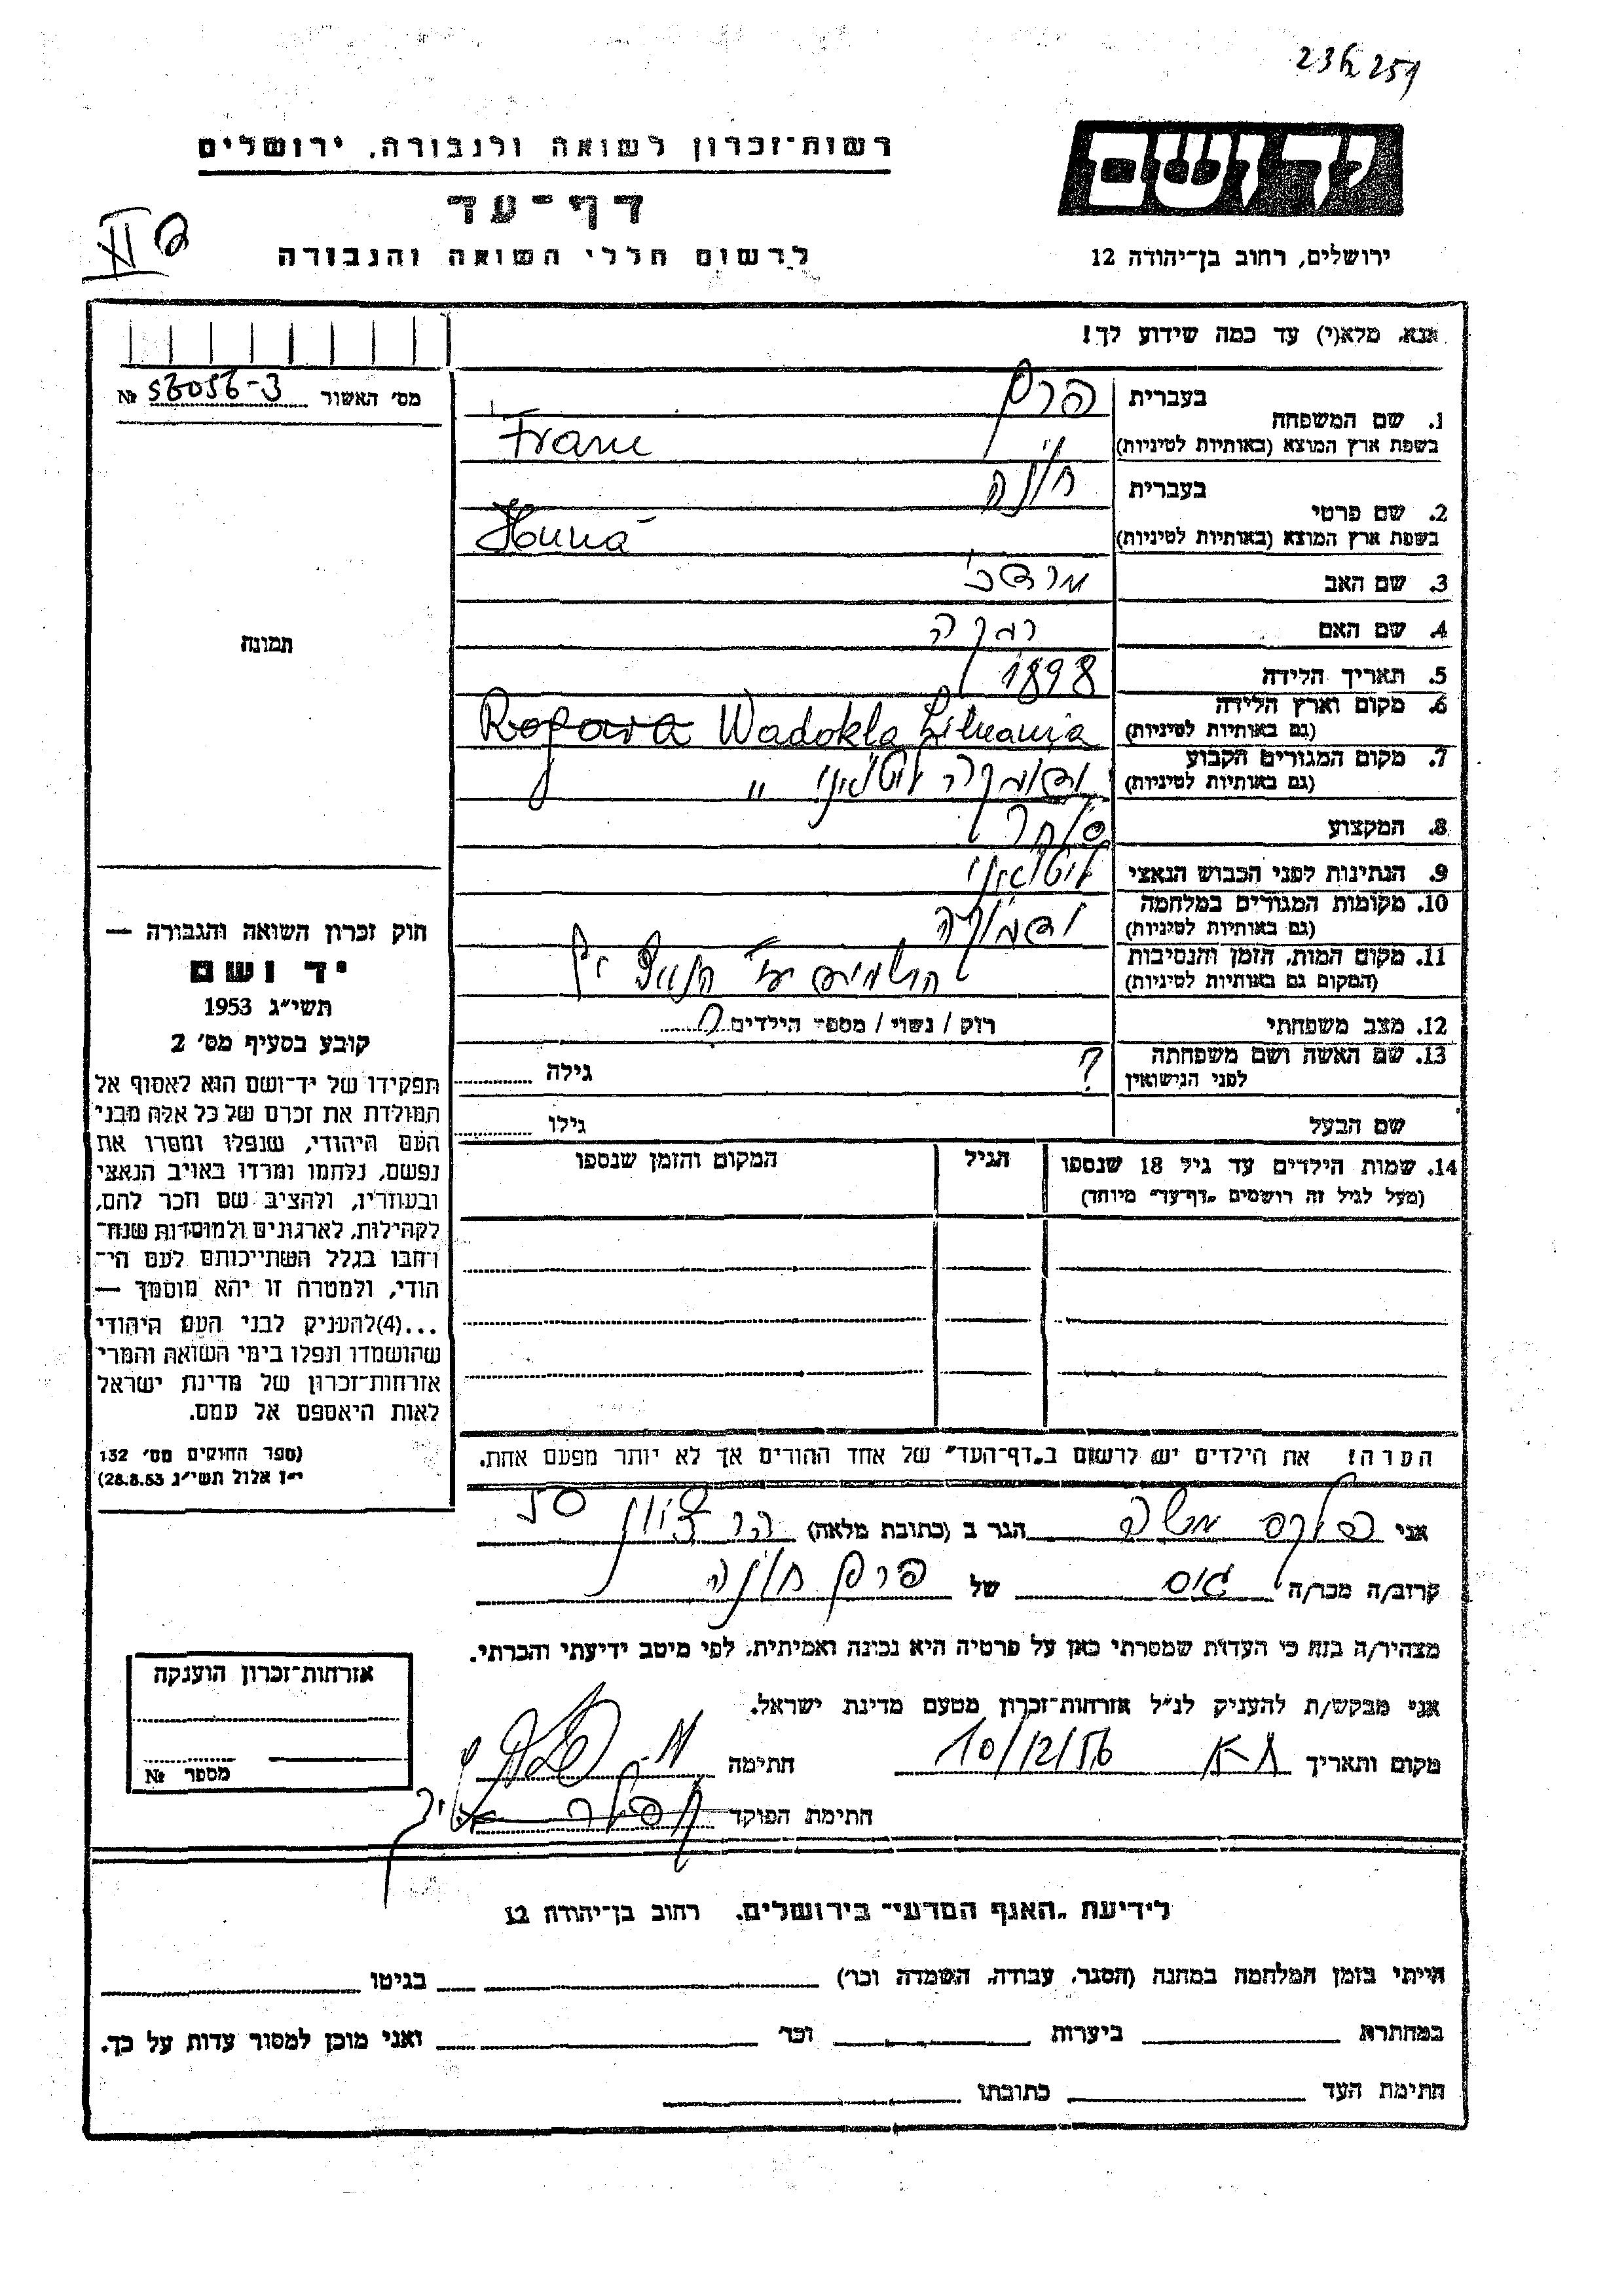 236259
רשות־זכרון לשואה ולגבורה, ירושלים
יד ושם
דף־עד
לרשום חללי השואה והגבורה
ירושלים, רחוב בן־יהודה 12
אנא, מלא(י) עד כמה שידוע לך!
מס׳ האשור № 56056-3
1. שם המשפחה
בעברית פרם
בשפת ארץ המוצא (באותיות לטיניות) Fram
2. שם פרטי
בעברית חונה
בשפת ארץ המוצא (באותיות לטיניות) Houna
3. שם האב מרדכי
4. שם האם רבקה
5. תאריך הלידה 1898
6. מקום וארץ הלידה
(גם באותיות לטיניות) Wadokla Lituania
7. מקום המגורים הקבוע
(גם באותיות לטיניות) "
8. המקצוע סוחר
9. הנתינות לפני הכבוש הנאצי ליטאוני
10. מקומות המגורים במלחמה
(גם באותיות לטיניות)
11. מקום המות, הזמן והנסיבות
(המקום גם באותיות לטיניות) ע״י
12. מצב משפחתי רוק / נשוי / מספר הילדים ?
13. שם האשה ושם משפחתה
לפני הנישואין ? גילה
שם הבעל גילו
14. שמות הילדים עד גיל 18 שנספו הגיל המקום והזמן שנספו
(מעל לגיל זה רושמים „דף־עד״ מיוחד)
הערה! את הילדים יש לרשום ב„דף־העד״ של אחד ההורים אך לא יותר מפעם אחת.
תמונה
חוק זכרון השואה והגבורה —
יד ושם
תשי״ג 1953
קובע בסעיף מס׳ 2
תפקידו של יד־ושם הוא לאסוף אל
המולדת את זכרם של כל אלה מבני
העם היהודי, שנפלו ומסרו את
נפשם, נלחמו ומרדו באויב הנאצי
ובעוזריו, ולהציב שם וזכר להם,
לקהילות, לארגונים ולמוסדות שנח־
רחבו בגלל השתייכותם לעם הי־
הודי, ולמטרה זו יהא מוסמך —
...(4)להעניק לבני העם היהודי
שהושמדו ונפלו בימי השואה והמרי
אזרחות־זכרון של מדינת ישראל
לאות היאספם אל עמם.
(ספר החוקים מס׳ 132
י״ז אלול תשי״ג 28.8.53)
אני משה הגר ב (כתובת מלאה) הר ציון 50
קרוב/ה מכר/ה גיס של פרם חונה
מצהיר/ה בזה כי העדות שמסרתי כאן על פרטיה היא נכונה ואמיתית, לפי מיטב ידיעתי והכרתי.
אני מבקש/ת להעניק לנ״ל אזרחות־זכרון מטעם מדינת ישראל.
מקום ותאריך ת־א 10/12/56 חתימה
חתימת הפוקד
אזרחות־זכרון הוענקה
מספר №
לידיעת „האגף המדעי״ בירושלים, רחוב בן־יהודה 12
הייתי בזמן המלחמה במחנה (הסגר, עבודה, השמדה וכו׳) בגיטו
במחתרת ביערות וכו׳ ואני מוכן למסור עדות על כך.
חתימת העד כתובתו